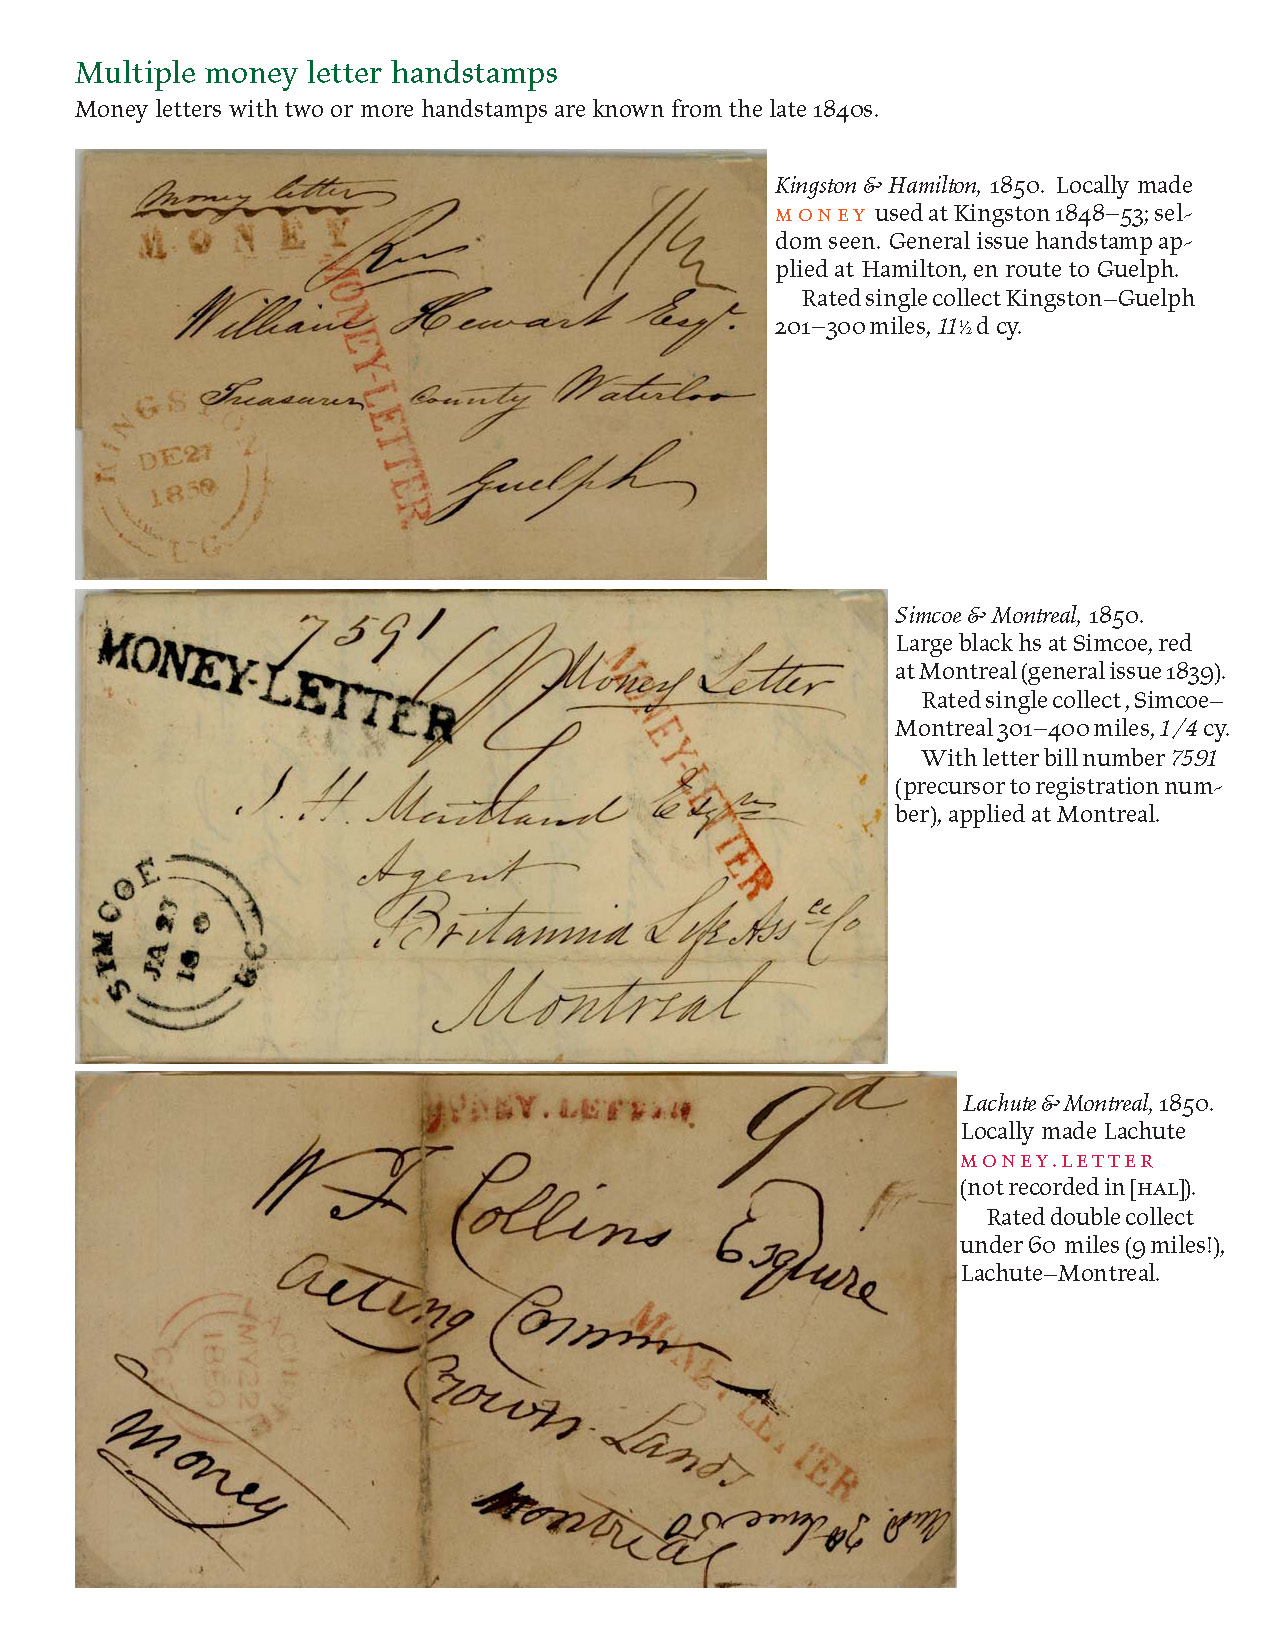 Multiple money letter handstamps
Money letters with two or more handstamps are known from the late 1840s.
Money letter
MONEY
11½
MONEY-LETTER
William Hewart Esqr.
Treasurer County Waterloo
Guelph
KINGSTON
DE 27
1850
U C
Kingston & Hamilton, 1850. Locally made
MONEY used at Kingston 1848–53; sel-
dom seen. General issue handstamp ap-
plied at Hamilton, en route to Guelph.
Rated single collect Kingston–Guelph
201–300 miles, 11½ d cy.
7591
MONEY-LETTER
Money Letter
MONEY-LETTER
J. H. Maitland Esqre
Agent
Britannia Life Assce Co
Montreal
SIMCOE
JA 23
Simcoe & Montreal, 1850.
Large black hs at Simcoe, red
at Montreal (general issue 1839).
Rated single collect, Simcoe–
Montreal 301–400 miles, 1/4 cy.
With letter bill number 7591
(precursor to registration num-
ber), applied at Montreal.
MONEY.LETTER
9d
W F Collins Esquire
Acting Comm
Crown Lands
Montreal
MONEY-LETTER
MY 22
1850
Money
Lachute & Montreal, 1850.
Locally made Lachute
MONEY.LETTER
(not recorded in [HAL]).
Rated double collect
under 60 miles (9 miles!),
Lachute–Montreal.